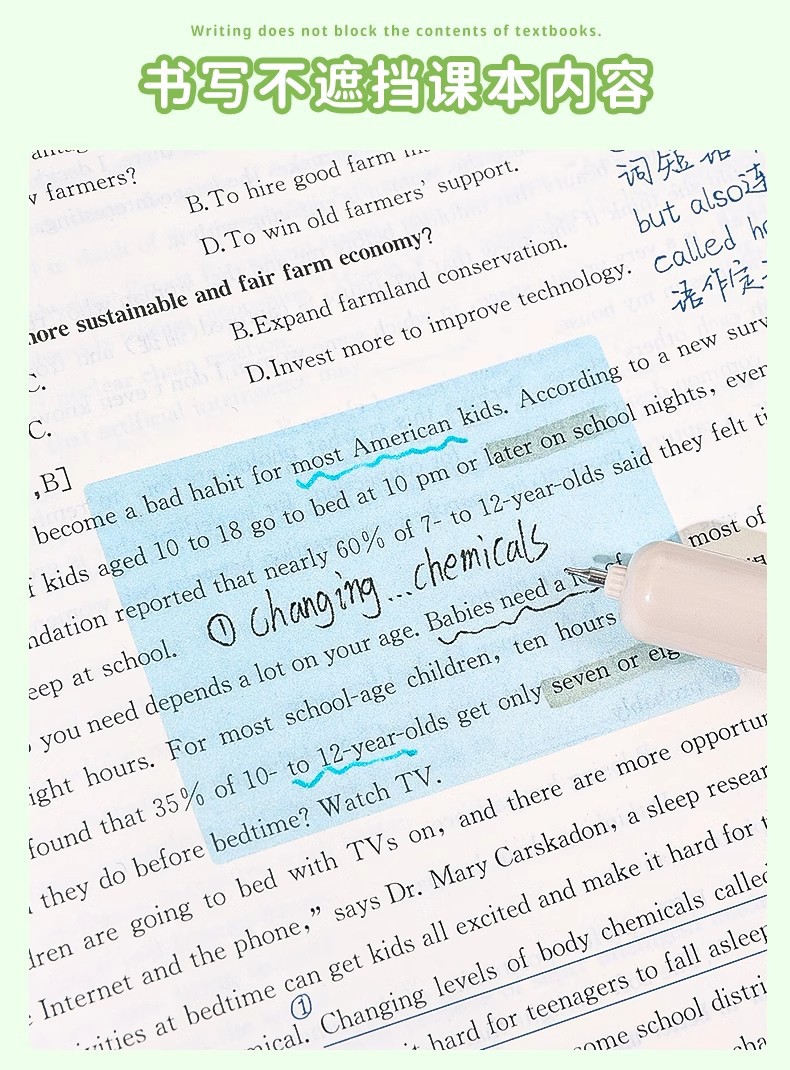 Writing does not block the contents of textbooks.
书写不遮挡课本内容
farmers?
B.To hire good farm
D.To win old farmers' support.
more sustainable and fair farm economy?
B.Expand farmland conservation.
D.Invest more to improve technology.
C.
C.
,B]
词短语
but also连
called
语作定
become a bad habit for most American kids. According to a new surv
kids aged 10 to 18 go to bed at 10 pm or later on school nights, ever
ndation reported that nearly 60% of 7- to 12-year-olds said they felt ti
① changing...chemicals
eep at school.
you need depends a lot on your age. Babies need a lot of most of
ight hours. For most school-age children, ten hours
found that 35% of 10- to 12-year-olds get only seven or eig
they do before bedtime? Watch TV.
dren are going to bed with TVs on, and there are more opportun
Internet and the phone," says Dr. Mary Carskadon, a sleep resear
ivities at bedtime can get kids all excited and make it hard for t
①
mical. Changing levels of body chemicals called
hard for teenagers to fall asleep
ome school distri